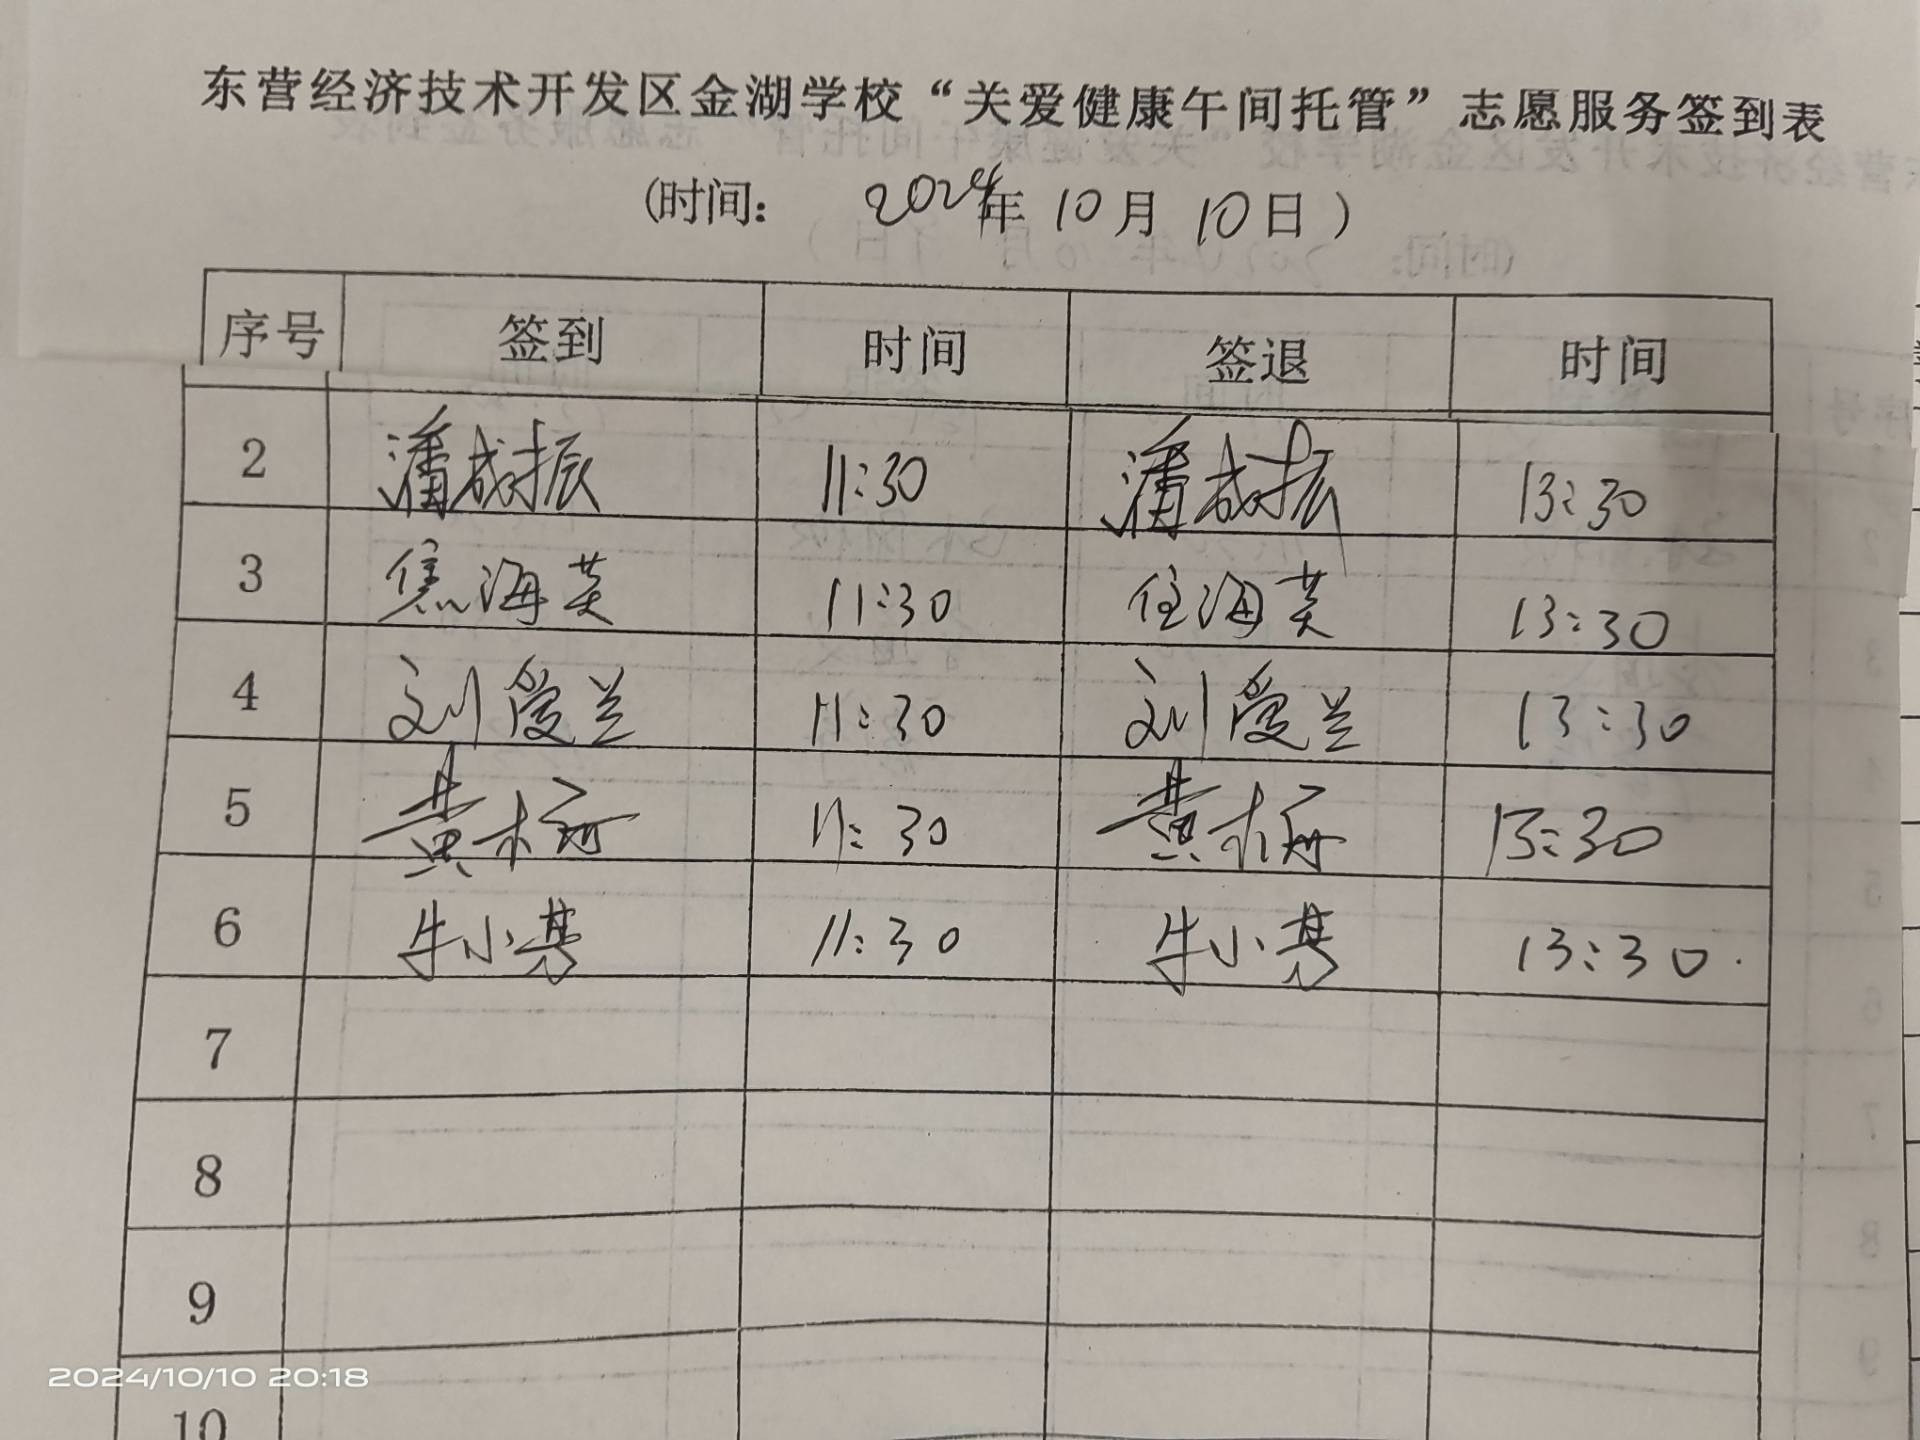 东营经济技术开发区金湖学校“关爱健康午间托管”志愿服务签到表
(时间： 2024年 10月 10日）
序号 签到 时间 签退 时间
2 潘成振 11:30 潘成振 13:30
3 焦海英 11:30 焦海英 13:30
4 刘爱兰 11:30 刘爱兰 13:30
5 黄 11:30 黄 13:30
6 牛小 11:30 牛小 13:30
7
8
9
10
2024/10/10 20:18